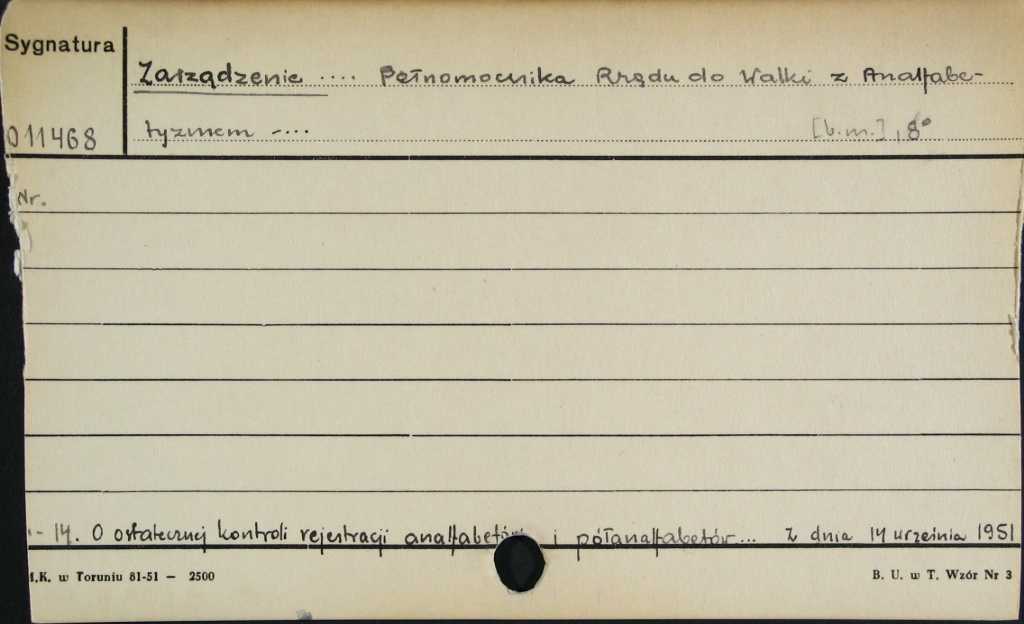 Sygnatura
Zarządzenie .... Pełnomocnika Rządu do Walki z Analfabe-
011468 tyzmem -... [b.m.], 8°
Nr.
- 14. O ostatecznej kontroli rejestracji analfabetów i półanalfabetów... Z dnia 14 września 1951
M.K. w Toruniu 81-51 — 2500
B. U. w T. Wzór Nr 3